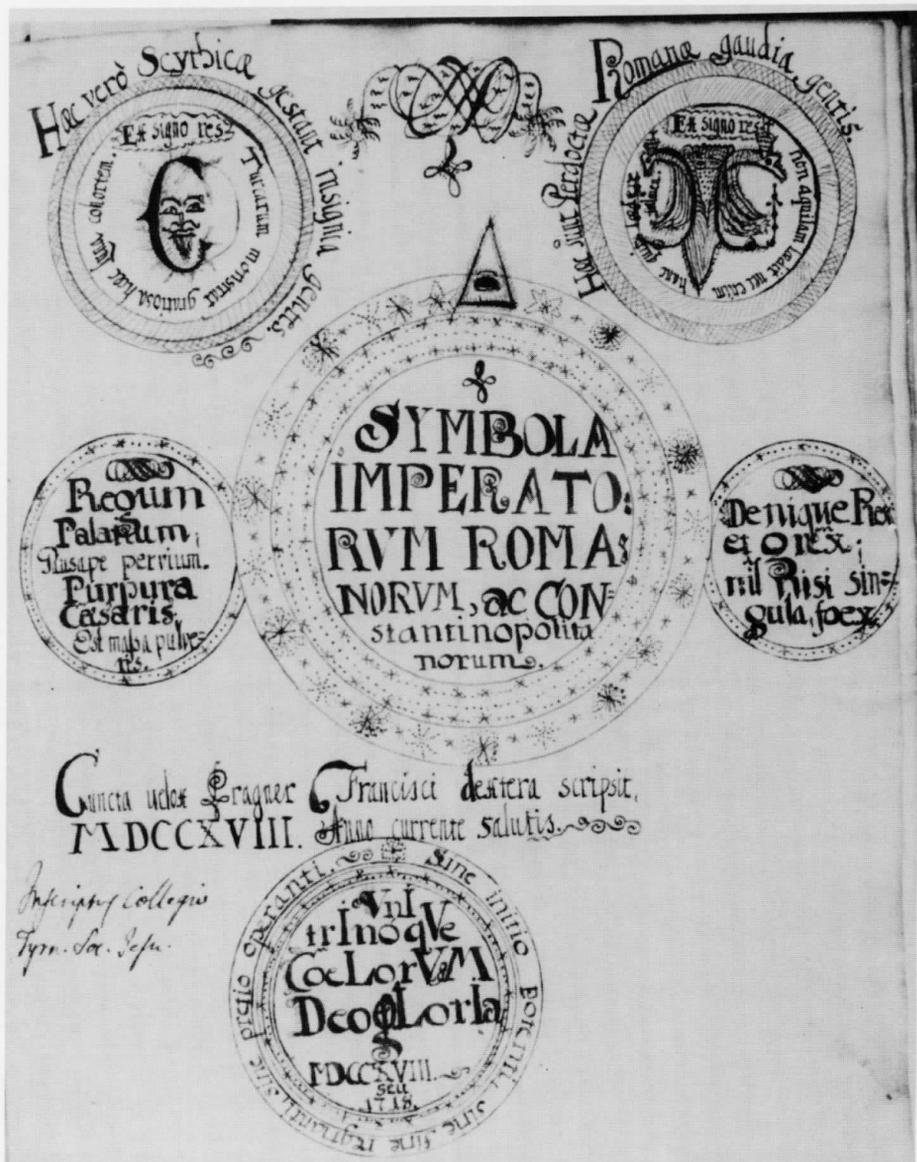 Hæc verò Scythicæ gestant insignia gentes.
Ex signo res
Turcarum monstrat gratiosa hæc luna cohortem.
Hæc sunt Perdoctæ Romanæ gaudia gentis.
Ex signo res
non aquilam lædit nec enim hanc quis lædere
SYMBOLA
IMPERATO:
RVM ROMA:
NORVM, ac CON=
stantinopolita
norum.
Regum
Palatium,
perrium.
Purpura
Cæsaris,
Est massa pulve=
ris.
Denique Rex
et Grex;
nil nisi sin=
gula, foex.
Cuncta uelox Pragner Francisci dextera scripsit,
MDCCXVIII. Anno currente salutis.
Inscriptus Collegio
Tyrn. Soc. Jesu.
Sine initio Potenti, sine fine regnanti, sine prætio operanti.
VnI
trInoqVe
CoeLorVM
Deo gLorIa
MDCCXVIII.
seu
1718.